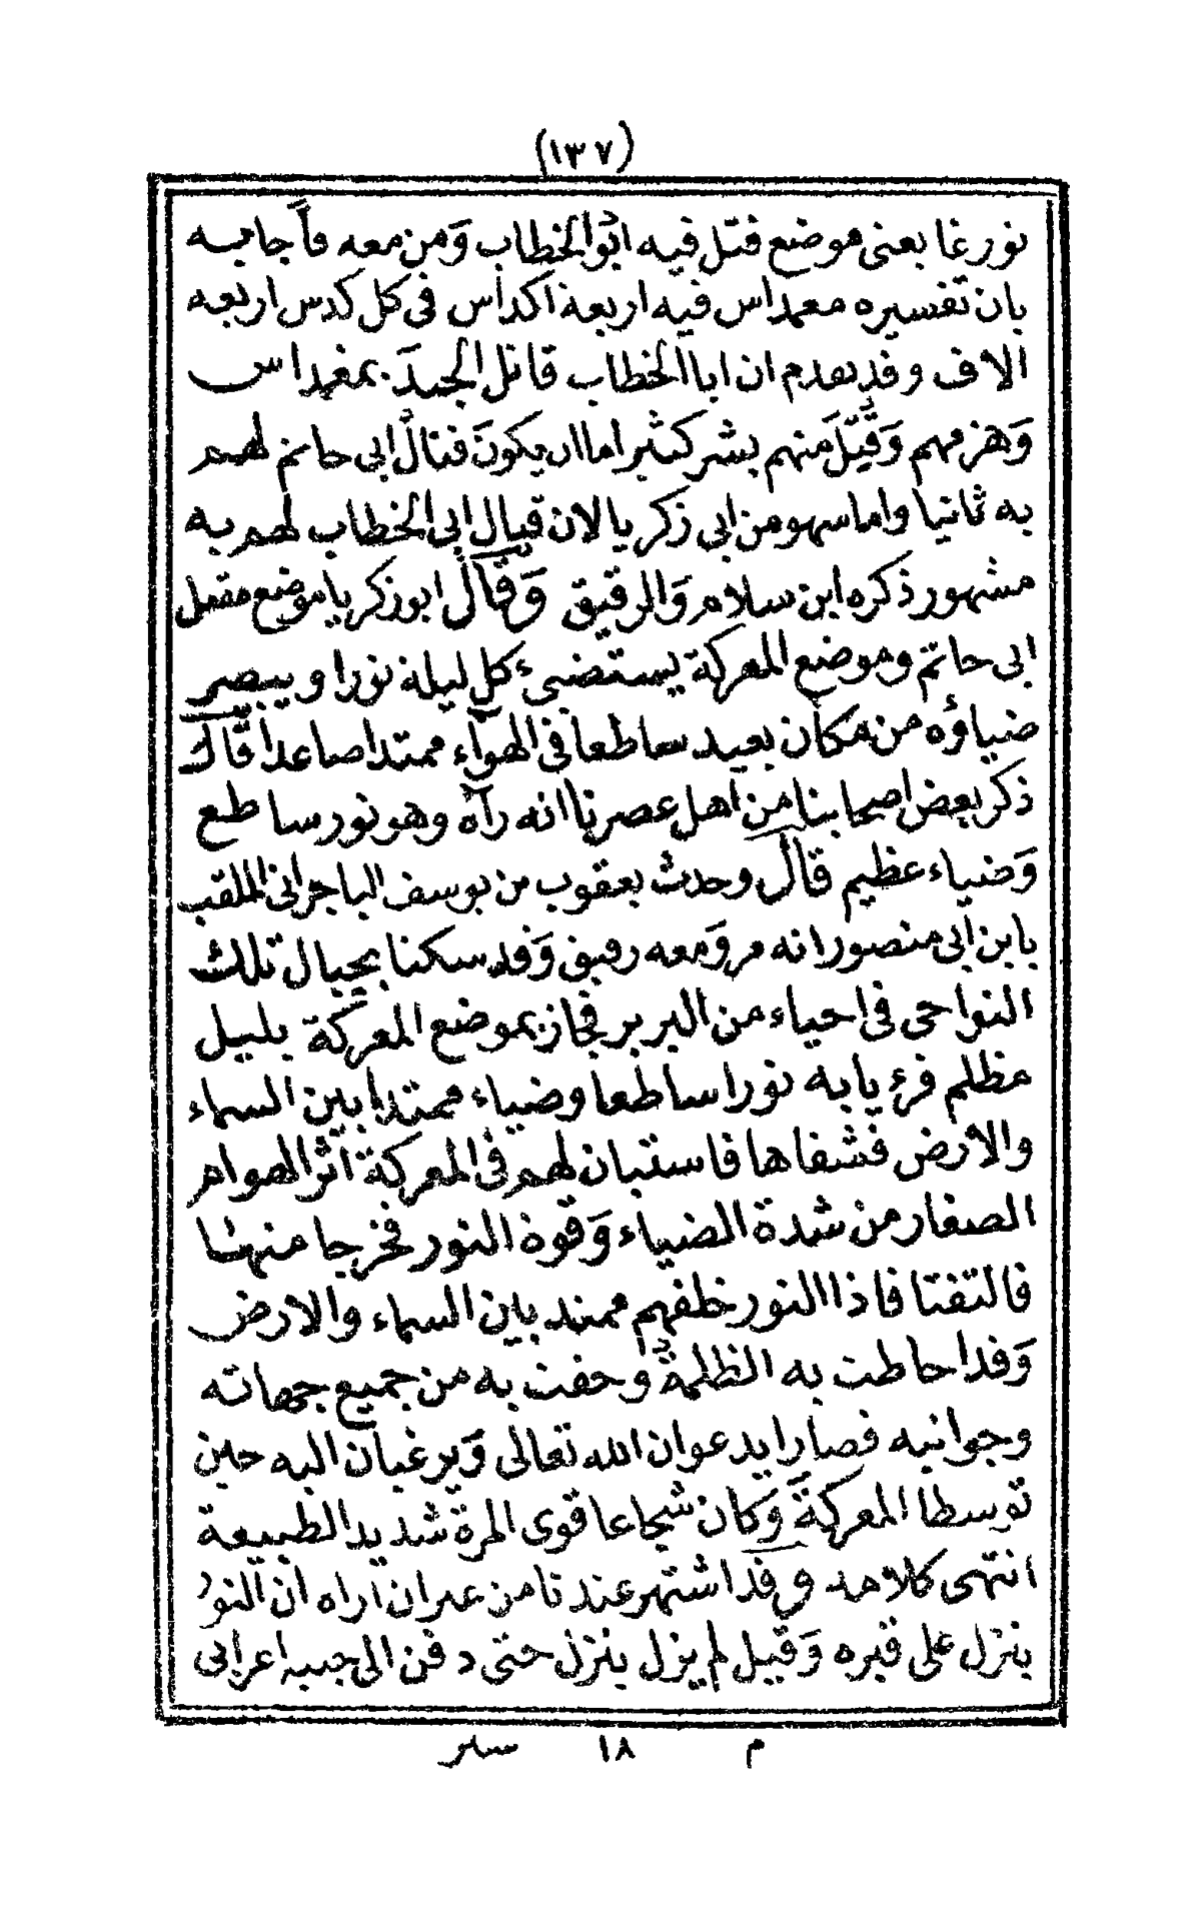 (١٣٧)
نورغا يعنى موضع قتل فيه ابو الخطاب وَمن معه فأجابه
بان تفسيره معمداس فيه اربعة اكداس فى كل كدس اربعه
الاف وقد تقدم ان ابا الخطاب قاتل الجند بمغمداس
وَهزمهم وَقتل منهم بشر كثير اما ان يكون قتال ابى حاتم لهم
به ثانيا واما سهو من ابى زكريا لان قتال ابى الخطاب لهم به
مشهور ذكره ابن سلام وَالرقيق وَقال ابو زكريا موضع مقتل
ابى حاتم وموضع المعركة يستضىء كل ليلة نورا ويبصر
ضياؤه من مكان بعيد ساطعا فى الهوآء ممتدا صاعدا قال
ذكر بعض اصحابنا من اهل عصرنا انه رآه وهو نور ساطع
وَضياء عظيم قال وحدث يعقوب بن يوسف الباجرانى الملقب
بابن ابى منصور انه مر وَمعه رفيق وَقد سكنا بجبال تلك
النواحى فى احياء من البربر فجاز بموضع المعركة بليل
مظلم فرءيا به نورا ساطعا وضياء ممتدا بين السماء
والارض فشفاها فاستبان لهم فى المعركة اثر الهوام
الصغار من شدة الضياء وَقوة النور فخرجا منها
فالتفتا فاذا النور خلفهم ممتد بين السماء والارض
وَقد احاطت به الظلمة وحفت به من جميع جهاته
وجوانبه فصارا يدعوان الله تعالى وَيرغبان اليه حين
توسطا المعركة وَكان شجاعا قوى المرة شديد الطبيعة
انتهى كلامه وقد اشتهر عندنا من عمران اراه ان النور
ينزل على قبره وَقيل لم يزل ينزل حتى دفن الى جنبه اعرابى
م ١٨ سلر